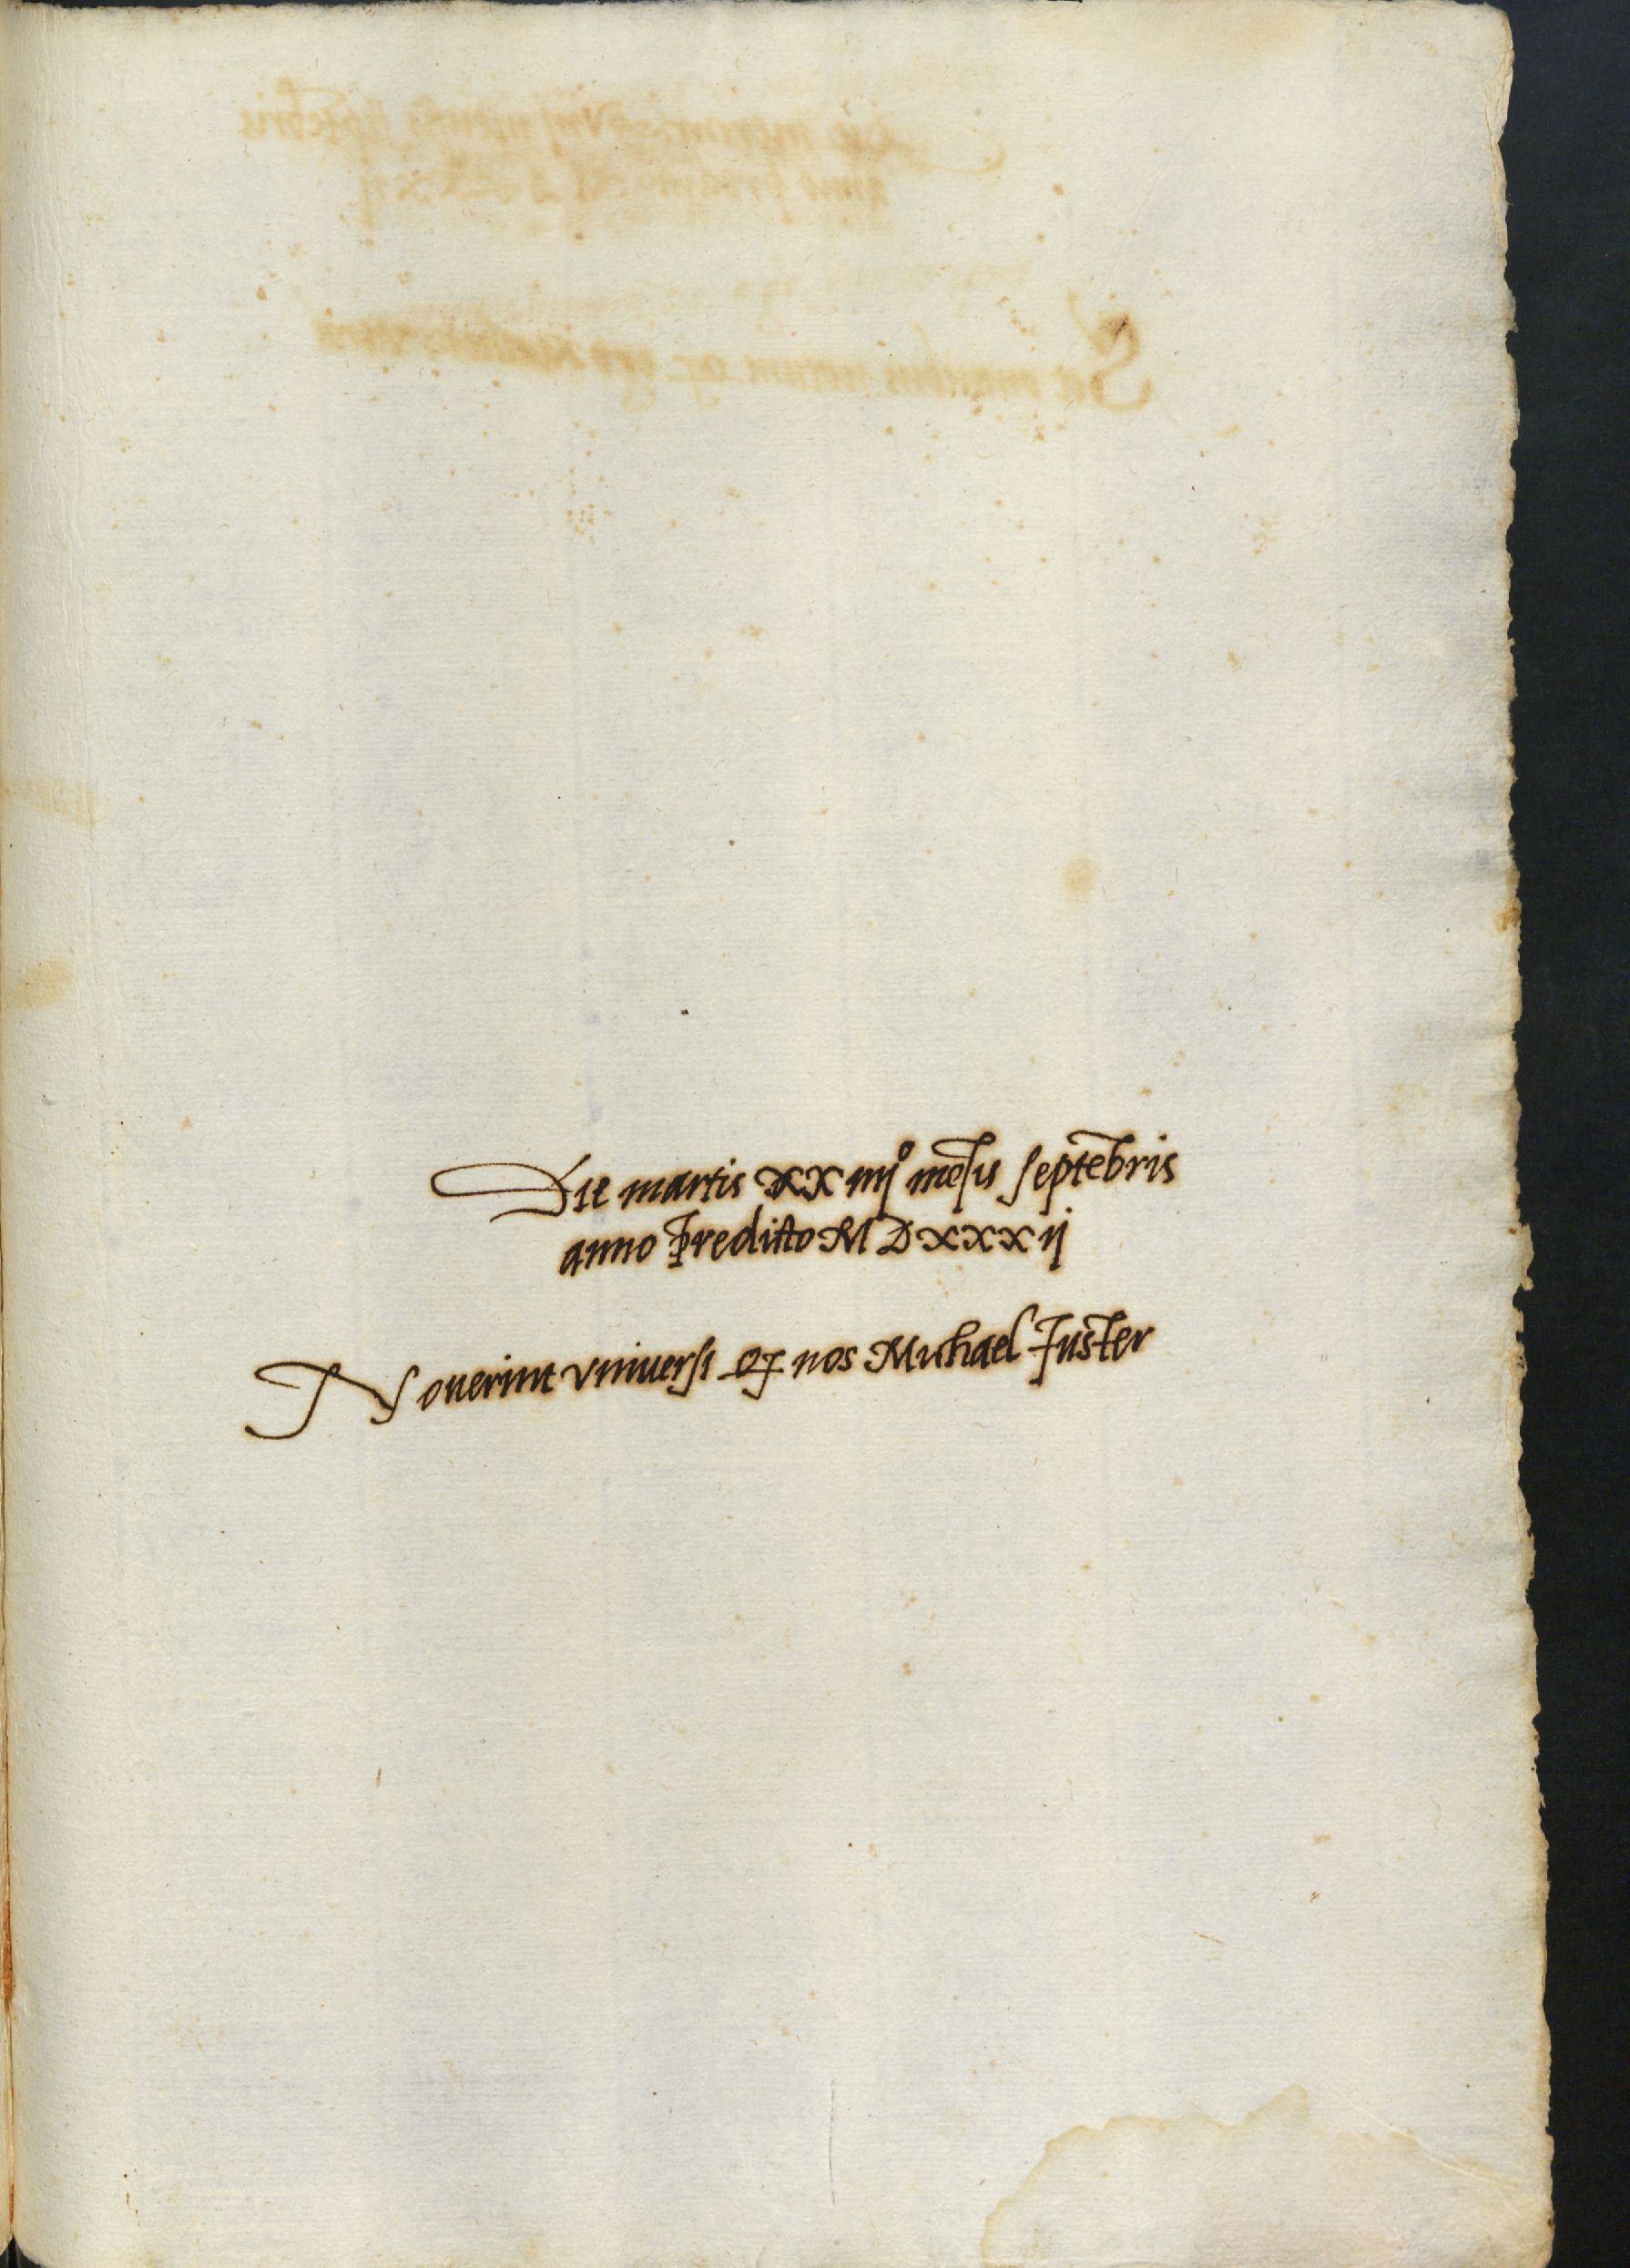 Die martis XXiiijº mēsis septēbris
anno predicto MDXXXij
Nouerint vniuersi qƷ nos Michael Fuster